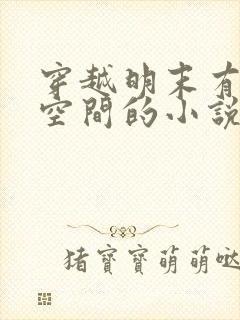 穿越明末有
空間的小說
猪寶寶萌萌噠